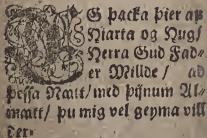 EG þacka þier aþ
Hiarta og Hug/
Herra Gud Fad-
er Millde/ ad
þessa Nætt/ med þijnum Al-
mætt/ þu mig vel geyma vill
der: